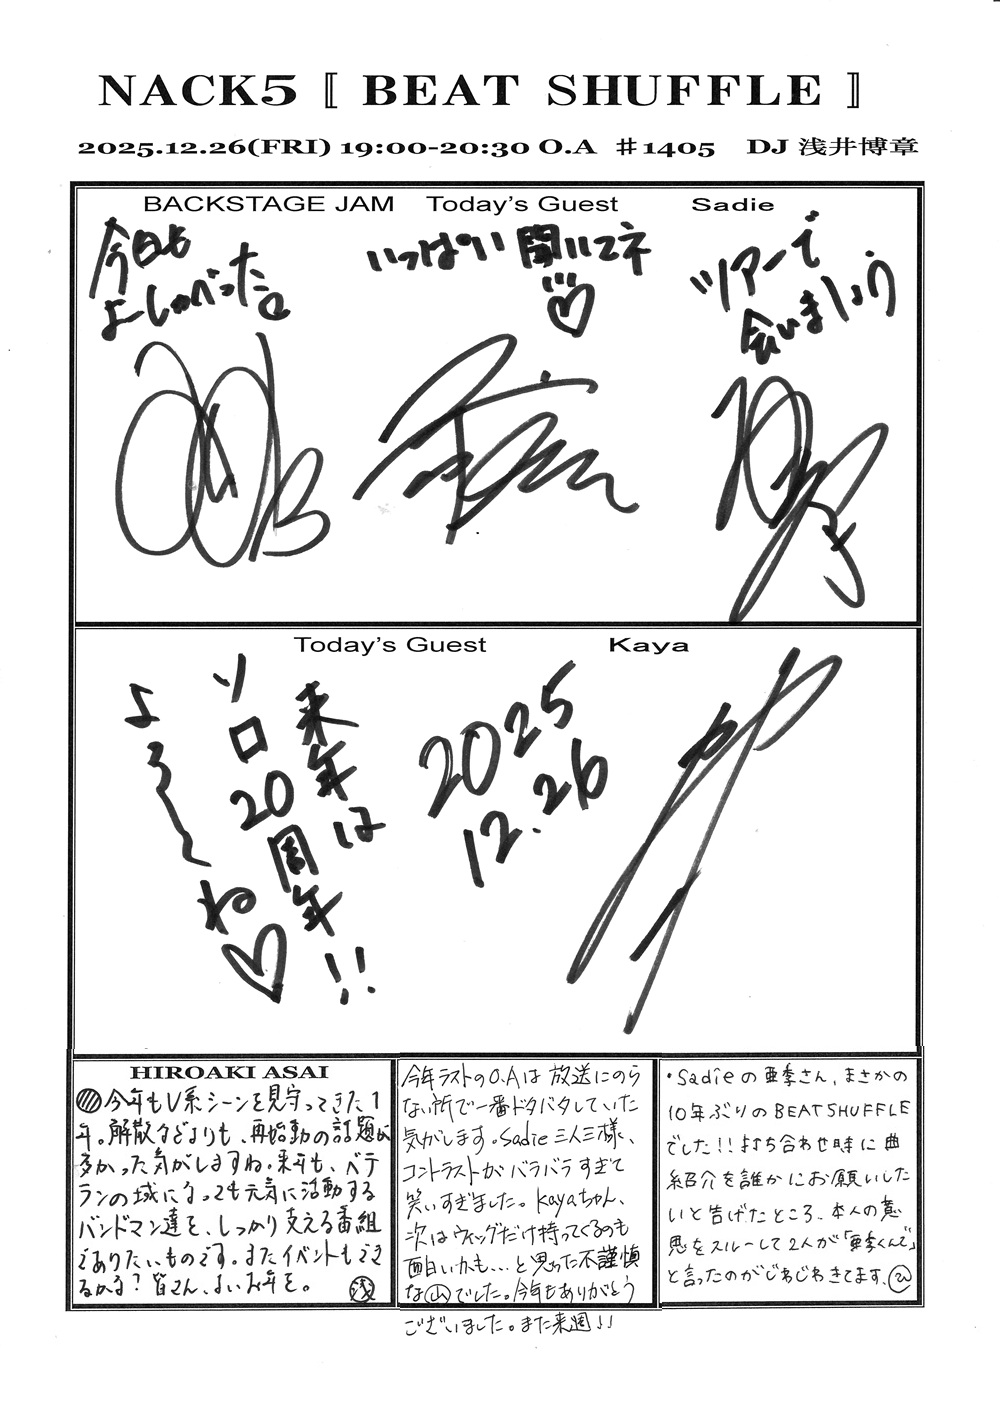 NACK5 〚 BEAT SHUFFLE 〛
2025.12.26(FRI) 19:00-20:30 O.A #1405 DJ 浅井博章
BACKSTAGE JAM Today's Guest Sadie
今日も
よーしゃべった
いっぱい聞いてネ♡
ツアーで
会いましょう
Today's Guest Kaya
来年は
ソロ20周年!!
よろ〜ね♡
2025
12.26
HIROAKI ASAI
今年もV系シーンを見守ってきた1
年。解散などよりも、再始動の話題が
多かった気がしますね。来年も、ベテ
ランの域になっても元気に活動する
バンドマン達を、しっかり支える番組
でありたいものです。またイベントもでき
るかな?皆さん、よいお年を。 浅
今年ラストのO.Aは放送にのら
ない所で一番ドタバタしていた
気がします。Sadie三人三様、
コントラストがバラバラすぎて
笑いすぎました。Kayaちゃん、
次はウィッグだけ持ってくるのも
面白いかも...と思った不謹慎
な山でした。今年もありがとう
ございました。また来週!!
・Sadieの亜季さん、まさかの
10年ぶりのBEAT SHUFFLE
でした!!打ち合わせ時に曲
紹介を誰かにお願いした
いと告げたところ、本人の意
思をスルーして2人が「亜季くんで」
と言ったのがじわじわきてます。ひ